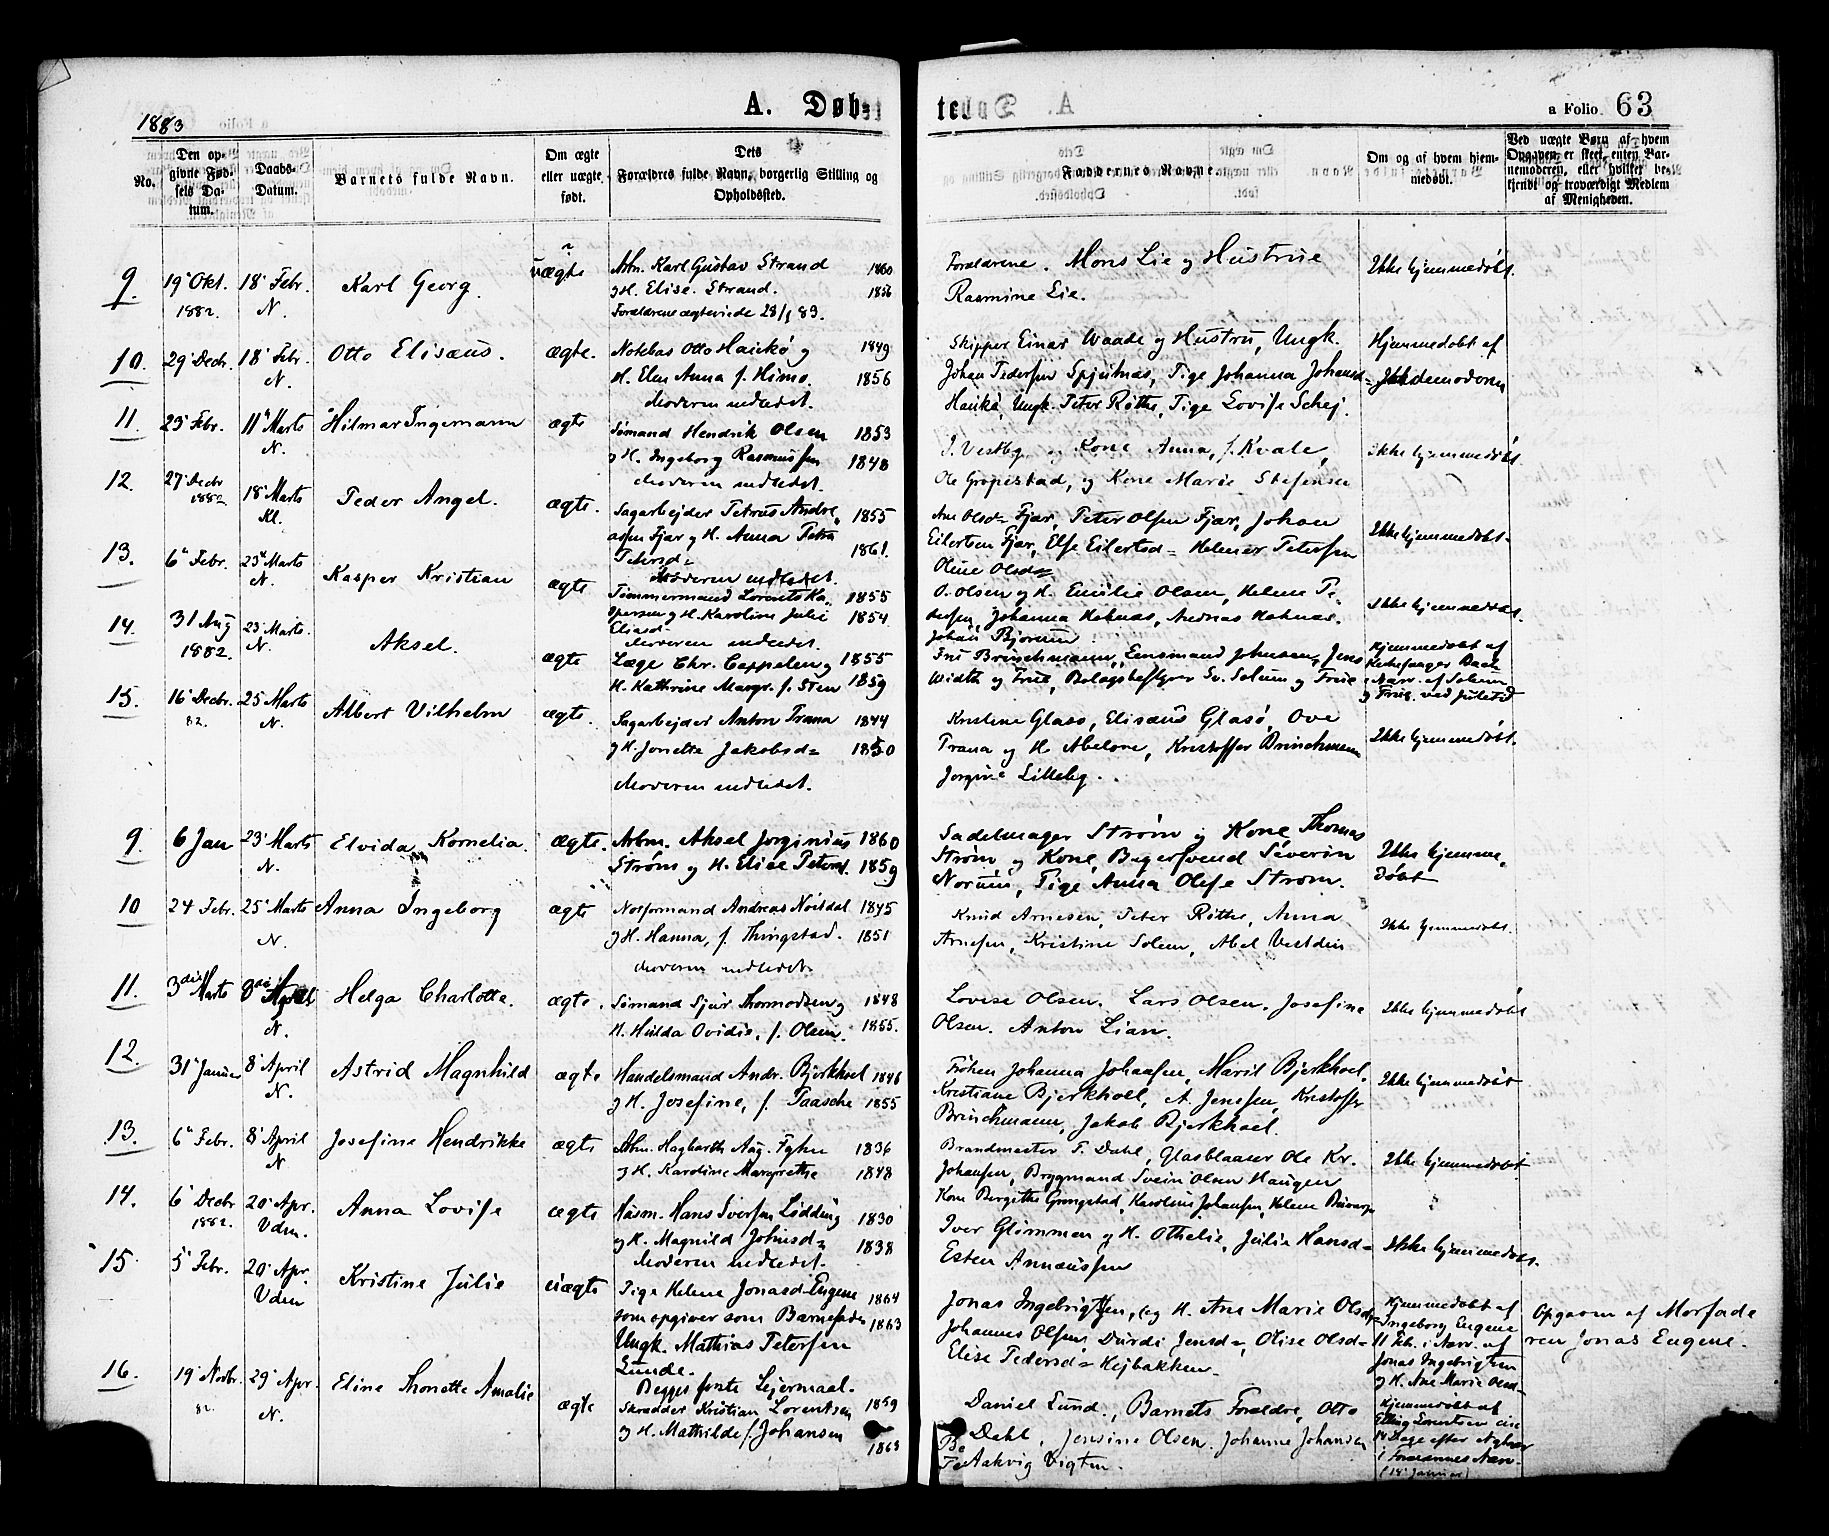 1883
A. Døbte
a Folio 63
No.
Den opgivne Fødsels Datum.
Daabs-Datum.
Barnets fulde Navn.
Om ægte eller uægte født.
Dets Forældres fulde Navn, borgerlig Stilling og Opholdssted.
Faddernes Navne.
Om og af hvem hjemmedøbt.
Ved uægte Børn af hvem Opgaven er skeet, enten Barnemoderen, eller hvilket bekjendt og troværdigt Medlem af Menigheden.
9. 19 Okt. 1882. 18 Febr. N. Karl Georg. uægte
Arbm. Karl Gustav Strand 1860
og H. Elise Strand. 1856
Forældrene ægteviede 28/1 83.
Forældrene. Mons Lie og Hustrue
Rasmine Lie.
Ikke hjemmedøbt.
10. 29 Decbr. 18 Febr. N. Otto Elisæus. ægte.
Notebas Otto Hauckø og 1849
H. Elen Anna f. Himo. 1856
Moderen indledet.
Skipper Einar Waade og Hustru, Ungk.
Johan Pedersen Spjutnæs, Pige Johanna Johansd=
Hauckø, Ungk. Peter Røthe, Pige Lovise Schej.
Hjemmedøbt af
Jordemoderen
11. 23 Febr. 11 Marts N. Hilmar Ingemann ægte
Sømand Hendrik Olsen 1853
og H. Ingeborg Rasmussen 1848
Moderen indledet.
J. Vestby og Kone Anna, f. Kvale,
Ole Gropestad, og Kone Marie Stefensen
Ikke hjemmedøbt
12. 27 Decbr 1882 18 Marts Kl. Peder Angel. ægte.
Sagarbejder Petrus Andre= 1855
asen Fjær og H. Anna Petra 1861.
Petersd=
Moderen indledet.
Ane Olsd= Fjær, Peter Olsen Fjær, Johan
Eilertsen Fjær, Else Eilertsd= Helmer Petersen
Oline Olsd=
Ikke hjemmedøbt.
13. 6 Febr. 23 Marts N. Kasper Kristian ægte
Tømmermand Lorents Ka= 1855
spersen og H. Karoline Julie 1854.
Eliasd=
Moderen indledet.
O. Olsen og H. Emilie Olsen, Helene Pe=
dersen, Johanna Hofnæs, Andreas Hofnæs.
Johan Bjørum
Ikke hjemmedøbt.
14. 31 Aug 1882. 23 Marts. N. Aksel. ægte
Læge Chr. Cappelen og 1855
H. Kathrine Margr. f. Sten 1859
Fru Brinchmann, Lensmand Johnsen, Jens
Width og Frue, Bolagsbestyrer Sv. Solum og Frue
Hjemmedøbt af
Kirkesanger Back
i Nærv. af Solum
og Frue ved Juletid
15. 16 Decbr. 82. 25 Marts N. Albert Vilhelm ægte.
Sagarbejder Anton Trana 1844
og H. Jonetta Jakobsd= 1850
Moderen indledet.
Kristine Glasø, Elisæus Glasø, Ove
Trana og H. Abelone, Kristoffer Brinchmann
Jorgine Lilleby.
Ikke hjemmedøbt.
9. 6 Jan 23 Marts N. Elvida Kornelia. ægte.
Arbm. Aksel Jorginius 1860
Strøm og H. Elise Petersd. 1859
Sadelmager Strøm og Kone Thomas
Strøm og Kone, Bagersvend Severin
Norum, Pige Anna Olise Strøm.
Ikke hjemme=
døbt
10 24 Febr. 25 Marts N. Anna Ingeborg ægte
Notformand Andreas Noisdal 1845
og H. Hanna, f. Thingstad. 1851
Moderen indledet.
Knud Arnesen, Peter Røthe, Anna
Arnesen, Kristine Solem, Abel Vestden
Ikke hjemmedøbt.
11. 3die Marts 8de April N. Helga Charlotte. ægte.
Sømand Sjur Thormodsen og 1848
H. Hulda Ovidie, f. Olsen. 1855.
Lovise Olsen. Lars Olsen. Josefine
Olsen. Anton Lian.
Ikke hjemmedøbt
12. 31 Januar 8 April N. Astrid Magnhild ægte
Handelsmand Andr. Bjerkhoel 1846
og H. Josefine, f. Paasche 1855
Frøken Johanna Johansen, Marit Bjerkhoel,
Kristiane Bjerkhoel, A. Jenssen, Kristoffer
Brinchmann, Jakob Bjerkhoel.
Ikke hjemmedøbt
13. 6 Febr. 8 April N Josefine Hendrikke ægte
Arbm. Hagbarth Aug. Fyhn 1836
og H. Karoline Margrethe 1848
Brandmester T. Dahl, Glasblaaser Ole Kr.
Johansen, Brygmand Svein Olsen Haugen
Kone Bergitte Grongstad, Karoline Johansen, Helene
Ikke hjemmedøbt
14. 6 Decbr 1882. 20 Apr. Vdm. Anna Lovise ægte
Husm. Hans Iversen Lødding 1830
og H. Magnild Johnsd= 1838
Moderen indledet.
Iver Glømmen og H. Othelie, Julie Hansd=
Esten Annæussen
Ikke hjemmedøbt.
15. 5 Febr. 20 Apr. Vdm Kristine Julie uægte
Pige Helene Jonasd Eugene 1864
som opgiver som Barnefader 1863
Ungk. Mathias Petersen
Lunde.
Begges første Lejermaal.
Jonas Ingebrigtsen, og H. Ane Marie Olsd=
Johannes Olsen, Durdi Jensd=, Olise Olsd=
Elise Pedersd= Hejbakken.
Hjemmedøbt af
Ingeborg Eugene
11 Feb. i Nærv. af
Jonas Ingebrigtsen
og H. Ane Marie Olsd=
Opgaven af Morfade
ren Jonas Eugene.
16. 19 Novbr. 82. 29 Apr. N. Eline Thonette Amalie ægte
Skrædder Kristian Lorentsen 1859
og H. Mathilde f. Johansen 1863
Daniel Lund, Barnets Forældre, Otto
Dahl, Jensine Olsen. Johanne Johansen
Aakvig Vigten.
Hjemmedøbt af
Elling Lorentsen
14 Dage efter
i Forældrenes Nærv.
(18 Januar)